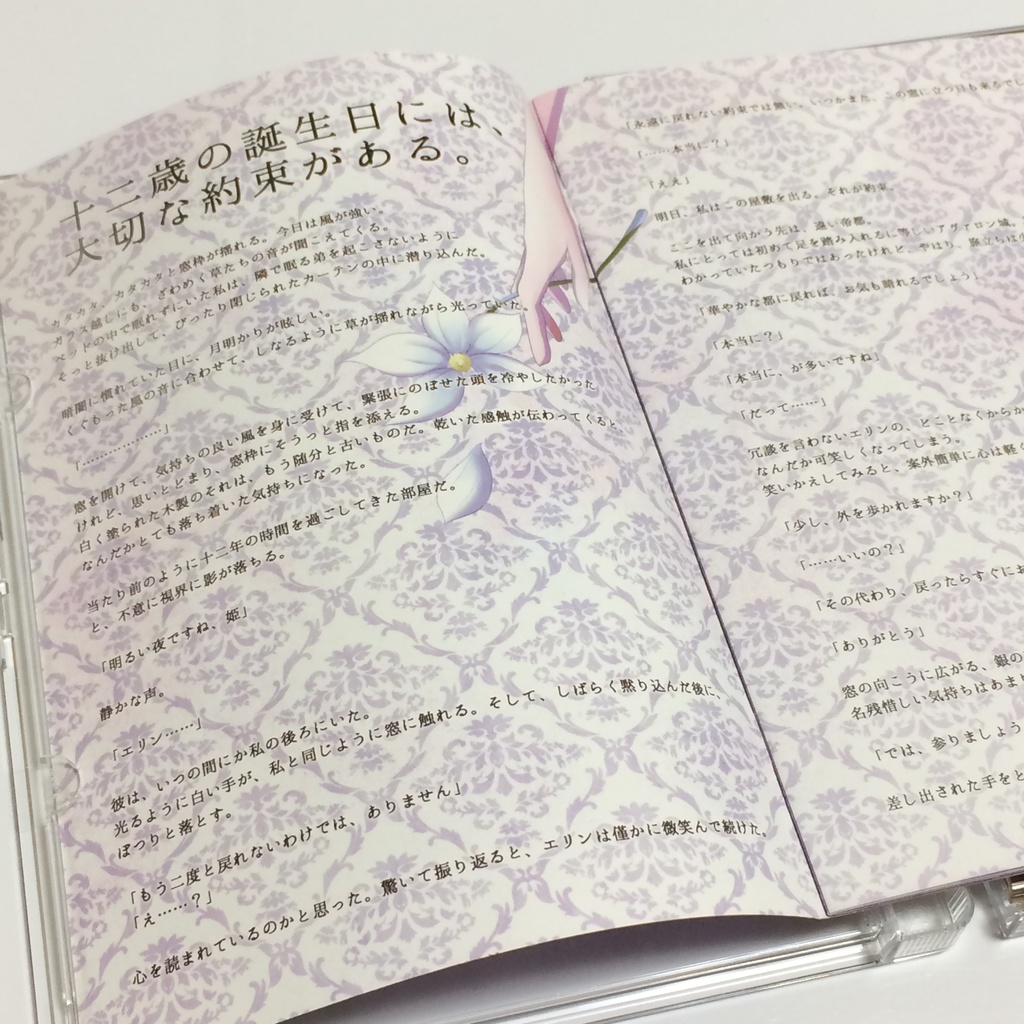 十二歳の誕生日には、
大切な約束がある。
カタカタ、カタカタと窓枠が揺れる。今日は風が強い。
ガラス越しにも、ざわめく草たちの音が聞こえてくる。
ベッドの中で眠れずにいた私は、隣で眠る弟を起こさないように
そっと抜け出して、ぴったり閉じられたカーテンの中に潜り込んだ。
暗闇に慣れていた目に、月明かりが眩しい。
くぐもった風の音に合わせて、しなるように草が揺れながら光っていた。
「………………」
窓を開けて、気持ちの良い風を身に受けて、緊張にのぼせた頭を冷やしたかった
けれど、思いとどまり、窓枠にそうっと指を添える。
白く塗られた木製のそれは、もう随分と古いものだ。乾いた感触が伝わってくると、
なんだかとても落ち着いた気持ちになった。
当たり前のように十二年の時間を過ごしてきた部屋だ。
と、不意に視界に影が落ちる。
「明るい夜ですね、姫」
静かな声。
「エリン……」
彼は、いつの間にか私の後ろにいた。
光るように白い手が、私と同じように窓に触れる。そして、しばらく黙り込んだ後に、
ぽつりと落とす。
「もう二度と戻れないわけでは、ありません」
「え……?」
心を読まれているのかと思った。驚いて振り返ると、エリンは僅かに微笑んで続けた。
「永遠に戻れない約束では無い。いつかまた、この窓に立つ日も来るでし
「……本当に?」
「ええ」
明日、私はこの屋敷を出る。それが約束。
ここを出て向かう先は、遠い帝都。
私にとっては初めて足を踏み入れるに等しいアヴァロン城。
わかっていたつもりではあったけれど、やはり、旅立ちは
「華やかな都に戻れば、お気も晴れるでしょう」
「本当に?」
「本当に、が多いですね」
「だって……」
冗談を言わないエリンの、どことなくからか
なんだか可笑しくなってしまう。
笑いかえしてみると、案外簡単に心は軽く
「少し、外を歩かれますか?」
「……いいの?」
「その代わり、戻ったらすぐにお
「ありがとう」
窓の向こうに広がる、銀の
名残惜しい気持ちはあまり
「では、参りましょう
差し出された手をと